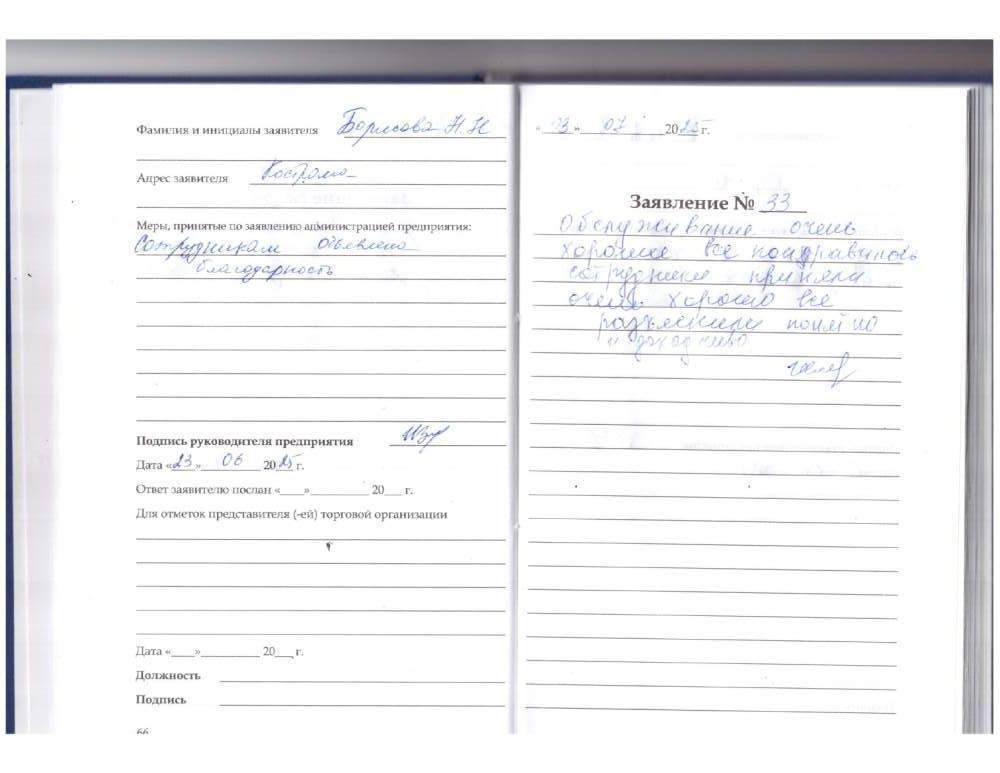 Фамилия и инициалы заявителя Борисова Н.Н
Адрес заявителя Кострома
Меры, принятые по заявлению администрацией предприятия:
Сотрудникам объявлена
благодарность
Подпись руководителя предприятия
Дата «23» 06 2025 г.
Ответ заявителю послан «____»__________ 20___ г.
Для отметок представителя (-ей) торговой организации
Дата «____»__________ 20___ г.
Должность
Подпись
66
«03» 07 2025 г.
Заявление № 33
Обслуживание очень
хорошие все понравилось
сотрудники приняли
очень хорошо все
разъяснили понятно
и доходчиво